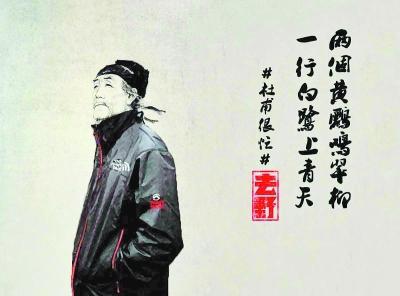 兩個黄鸝鳴翠柳
一行白鷺上青天
#杜甫很忙#
去野